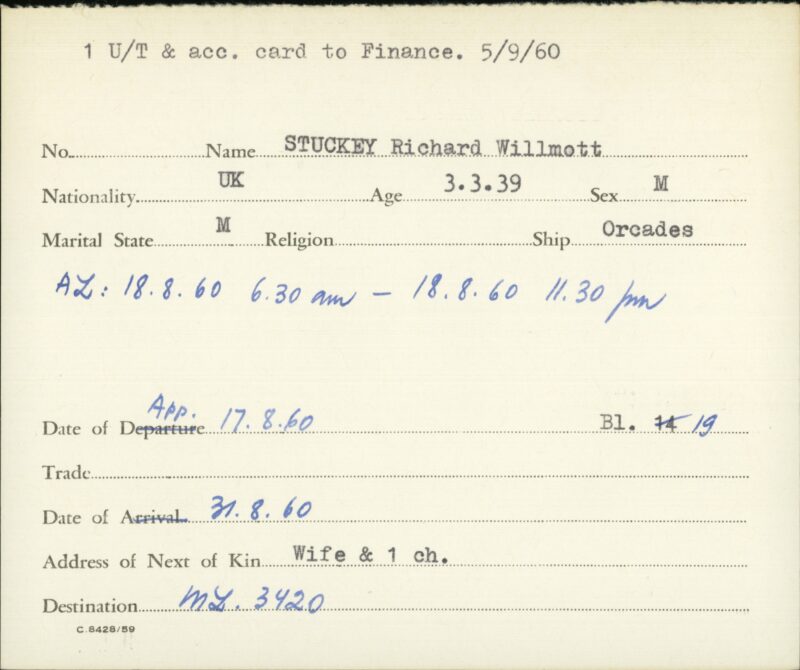 1 U/T & acc. card to Finance. 5/9/60
No. Name STUCKEY Richard Willmott
Nationality UK Age 3.3.39 Sex M
Marital State M Religion Ship Orcades
AL: 18.8.60 6.30 am – 18.8.60 11.30 pm
App.
Date of Departure 17.8.60 Bl. 14 19
Trade
Date of Arrival 31.8.60
Address of Next of Kin Wife & 1 ch.
Destination ML. 3420
C.8428/59